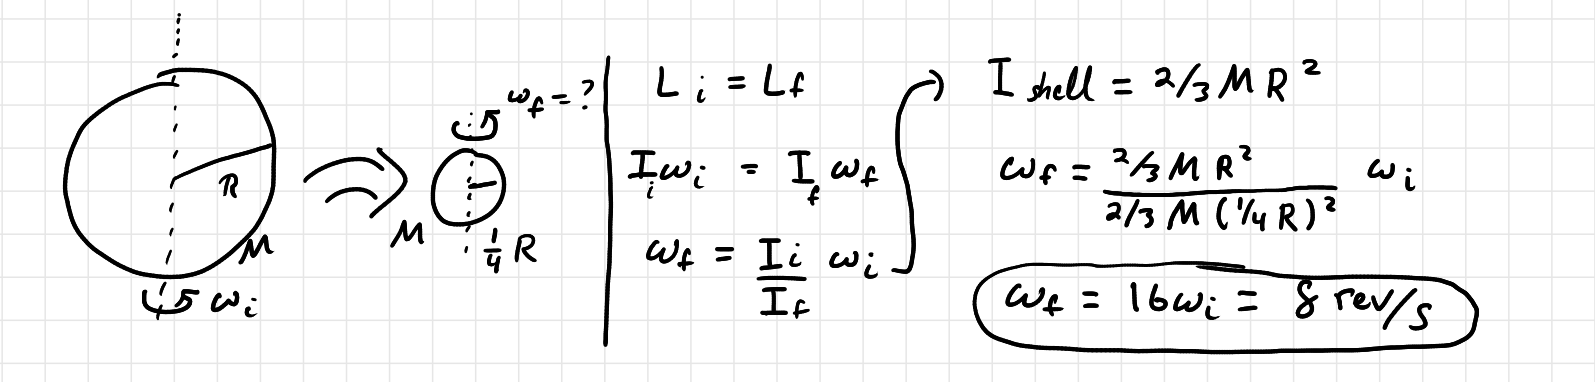 R
M
ωi
ωf = ?
M
1/4 R
Li = Lf
Ii ωi = If ωf
ωf = Ii/If ωi
I shell = 2/3 M R²
ωf = 2/3 M R² / 2/3 M (1/4 R)² ωi
ωf = 16ωi = 8 rev/s